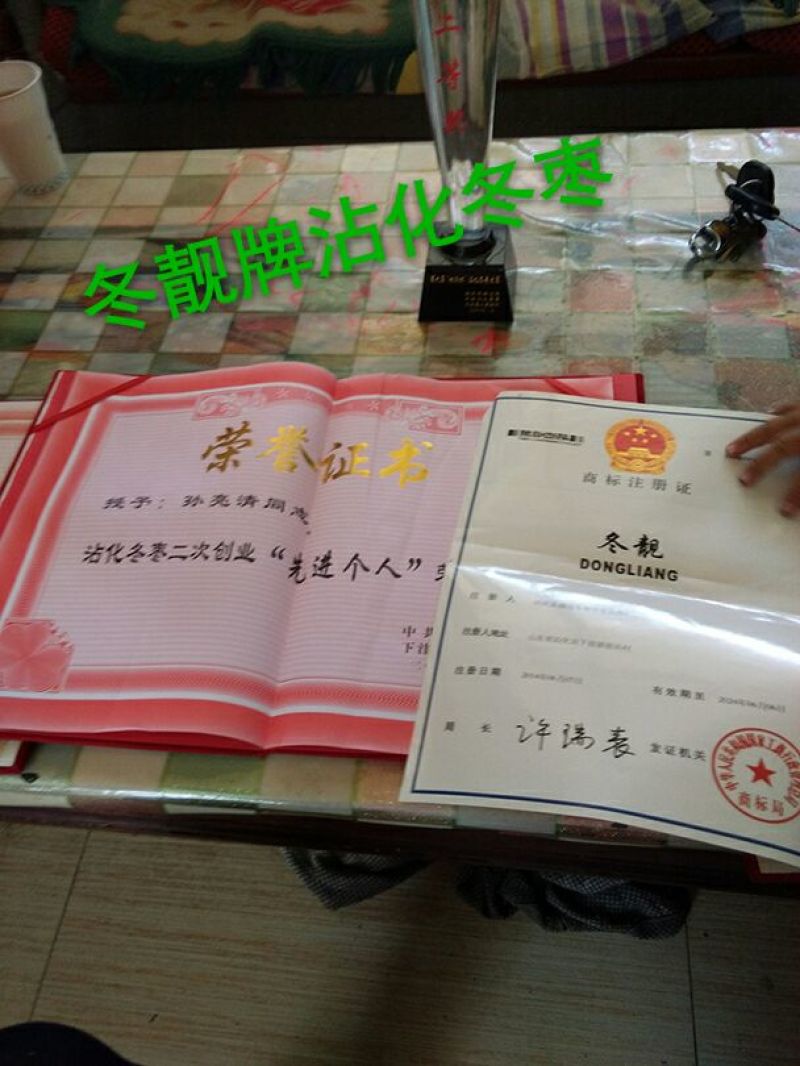 二等奖
冬靓牌沾化冬枣
荣誉证书
授予：孙亮清同志
沾化冬枣二次创业“先进个人”
中共
下洼
商标注册证
冬靓
DONGLIANG
注册人
注册人地址
注册日期
有效期至
局长
许瑞表
发证机关
中华人民共和国国家工商行政管理总局
商标局